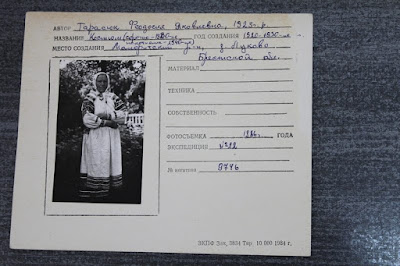 АВТОР Тарасюк Феодосия Яковлевна, 1923 г.р.
НАЗВАНИЕ Костюм ГОД СОЗДАНИЯ 1920-1930-е
МЕСТО СОЗДАНИЯ Малоритский р-н, д. Луково
Брестской обл.
МАТЕРИАЛ
ТЕХНИКА
СОБСТВЕННОСТЬ
ФОТОСЪЕМКА ГОДА
ЭКСПЕДИЦИЯ №22
№ негатива 8746
10 000 1984 г.